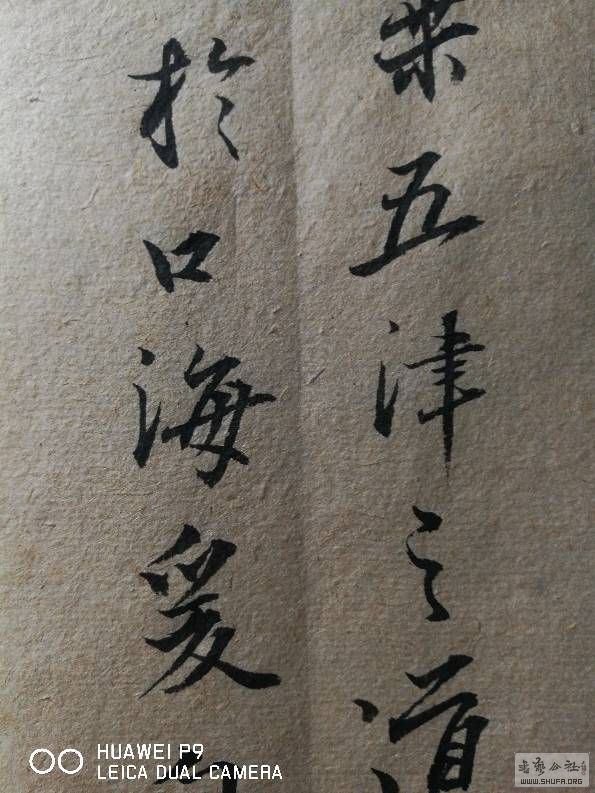 五津之道
於口海爰
HUAWEI P9
LEICA DUAL CAMERA
WWW.SHUFA.ORG